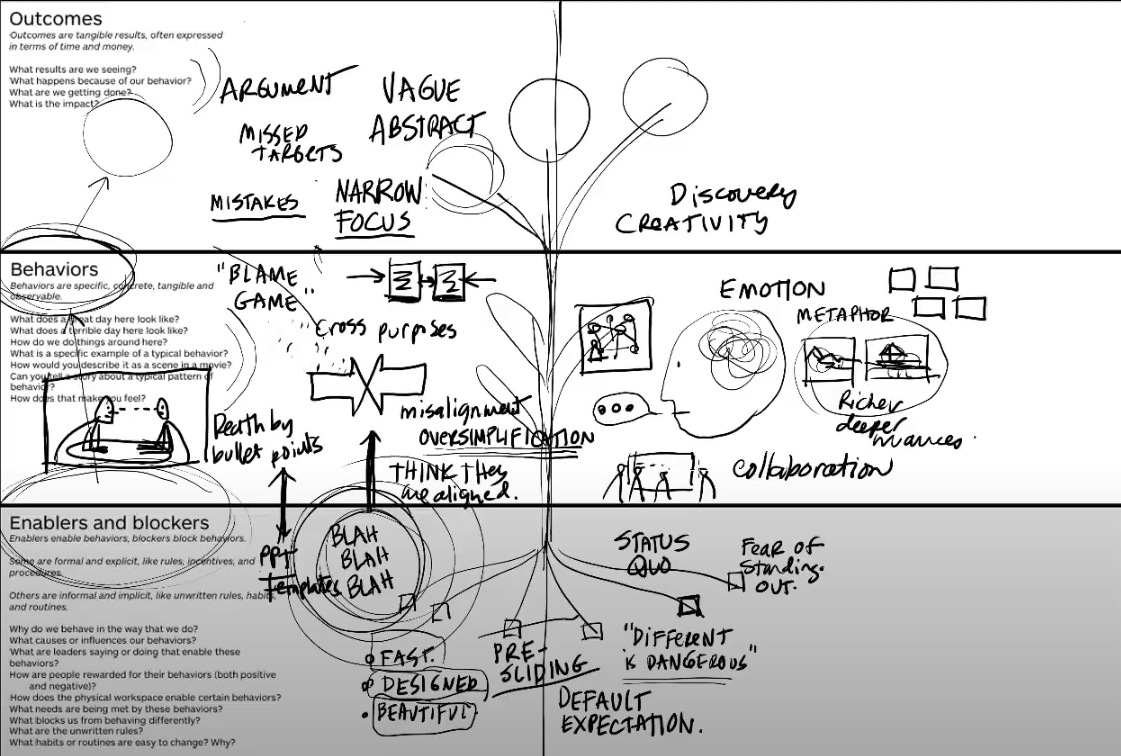 Outcomes
Outcomes are tangible results, often expressed
in terms of time and money.
What results are we seeing?
What happens because of our behavior?
What are we getting done?
What is the impact?
ARGUMENT
MISSED
TARGETS
MISTAKES
VAGUE
ABSTRACT
NARROW
FOCUS
Discovery
CREATIVITY
Behaviors
Behaviors are specific, concrete, tangible and
observable.
What does a great day here look like?
What does a terrible day here look like?
How do we do things around here?
What is a specific example of a typical behavior?
How would you describe it as a scene in a movie?
Can you tell a story about a typical pattern of
behavior?
How does that make you feel?
"BLAME
GAME"
Cross purposes
misalignment
OVERSIMPLIFICATION
Death by
bullet points
THINK They
are aligned.
EMOTION
METAPHOR
Richer
deeper
nuances.
collaboration
Enablers and blockers
Enablers enable behaviors, blockers block behaviors.
Some are formal and explicit, like rules, incentives, and
procedures.
Others are informal and implicit, like unwritten rules, habits
and routines.
Why do we behave in the way that we do?
What causes or influences our behaviors?
What are leaders saying or doing that enable these
behaviors?
How are people rewarded for their behaviors (both positive
and negative)?
How does the physical workspace enable certain behaviors?
What needs are being met by these behaviors?
What blocks us from behaving differently?
What are the unwritten rules?
What habits or routines are easy to change? Why?
PPT
templates
BLAH
BLAH
BLAH
FAST.
DESIGNED
BEAUTIFUL
PRE-
SLIDING
DEFAULT
EXPECTATION.
STATUS
QUO
"DIFFERENT
is DANGEROUS"
Fear of
Standing.
OUT.